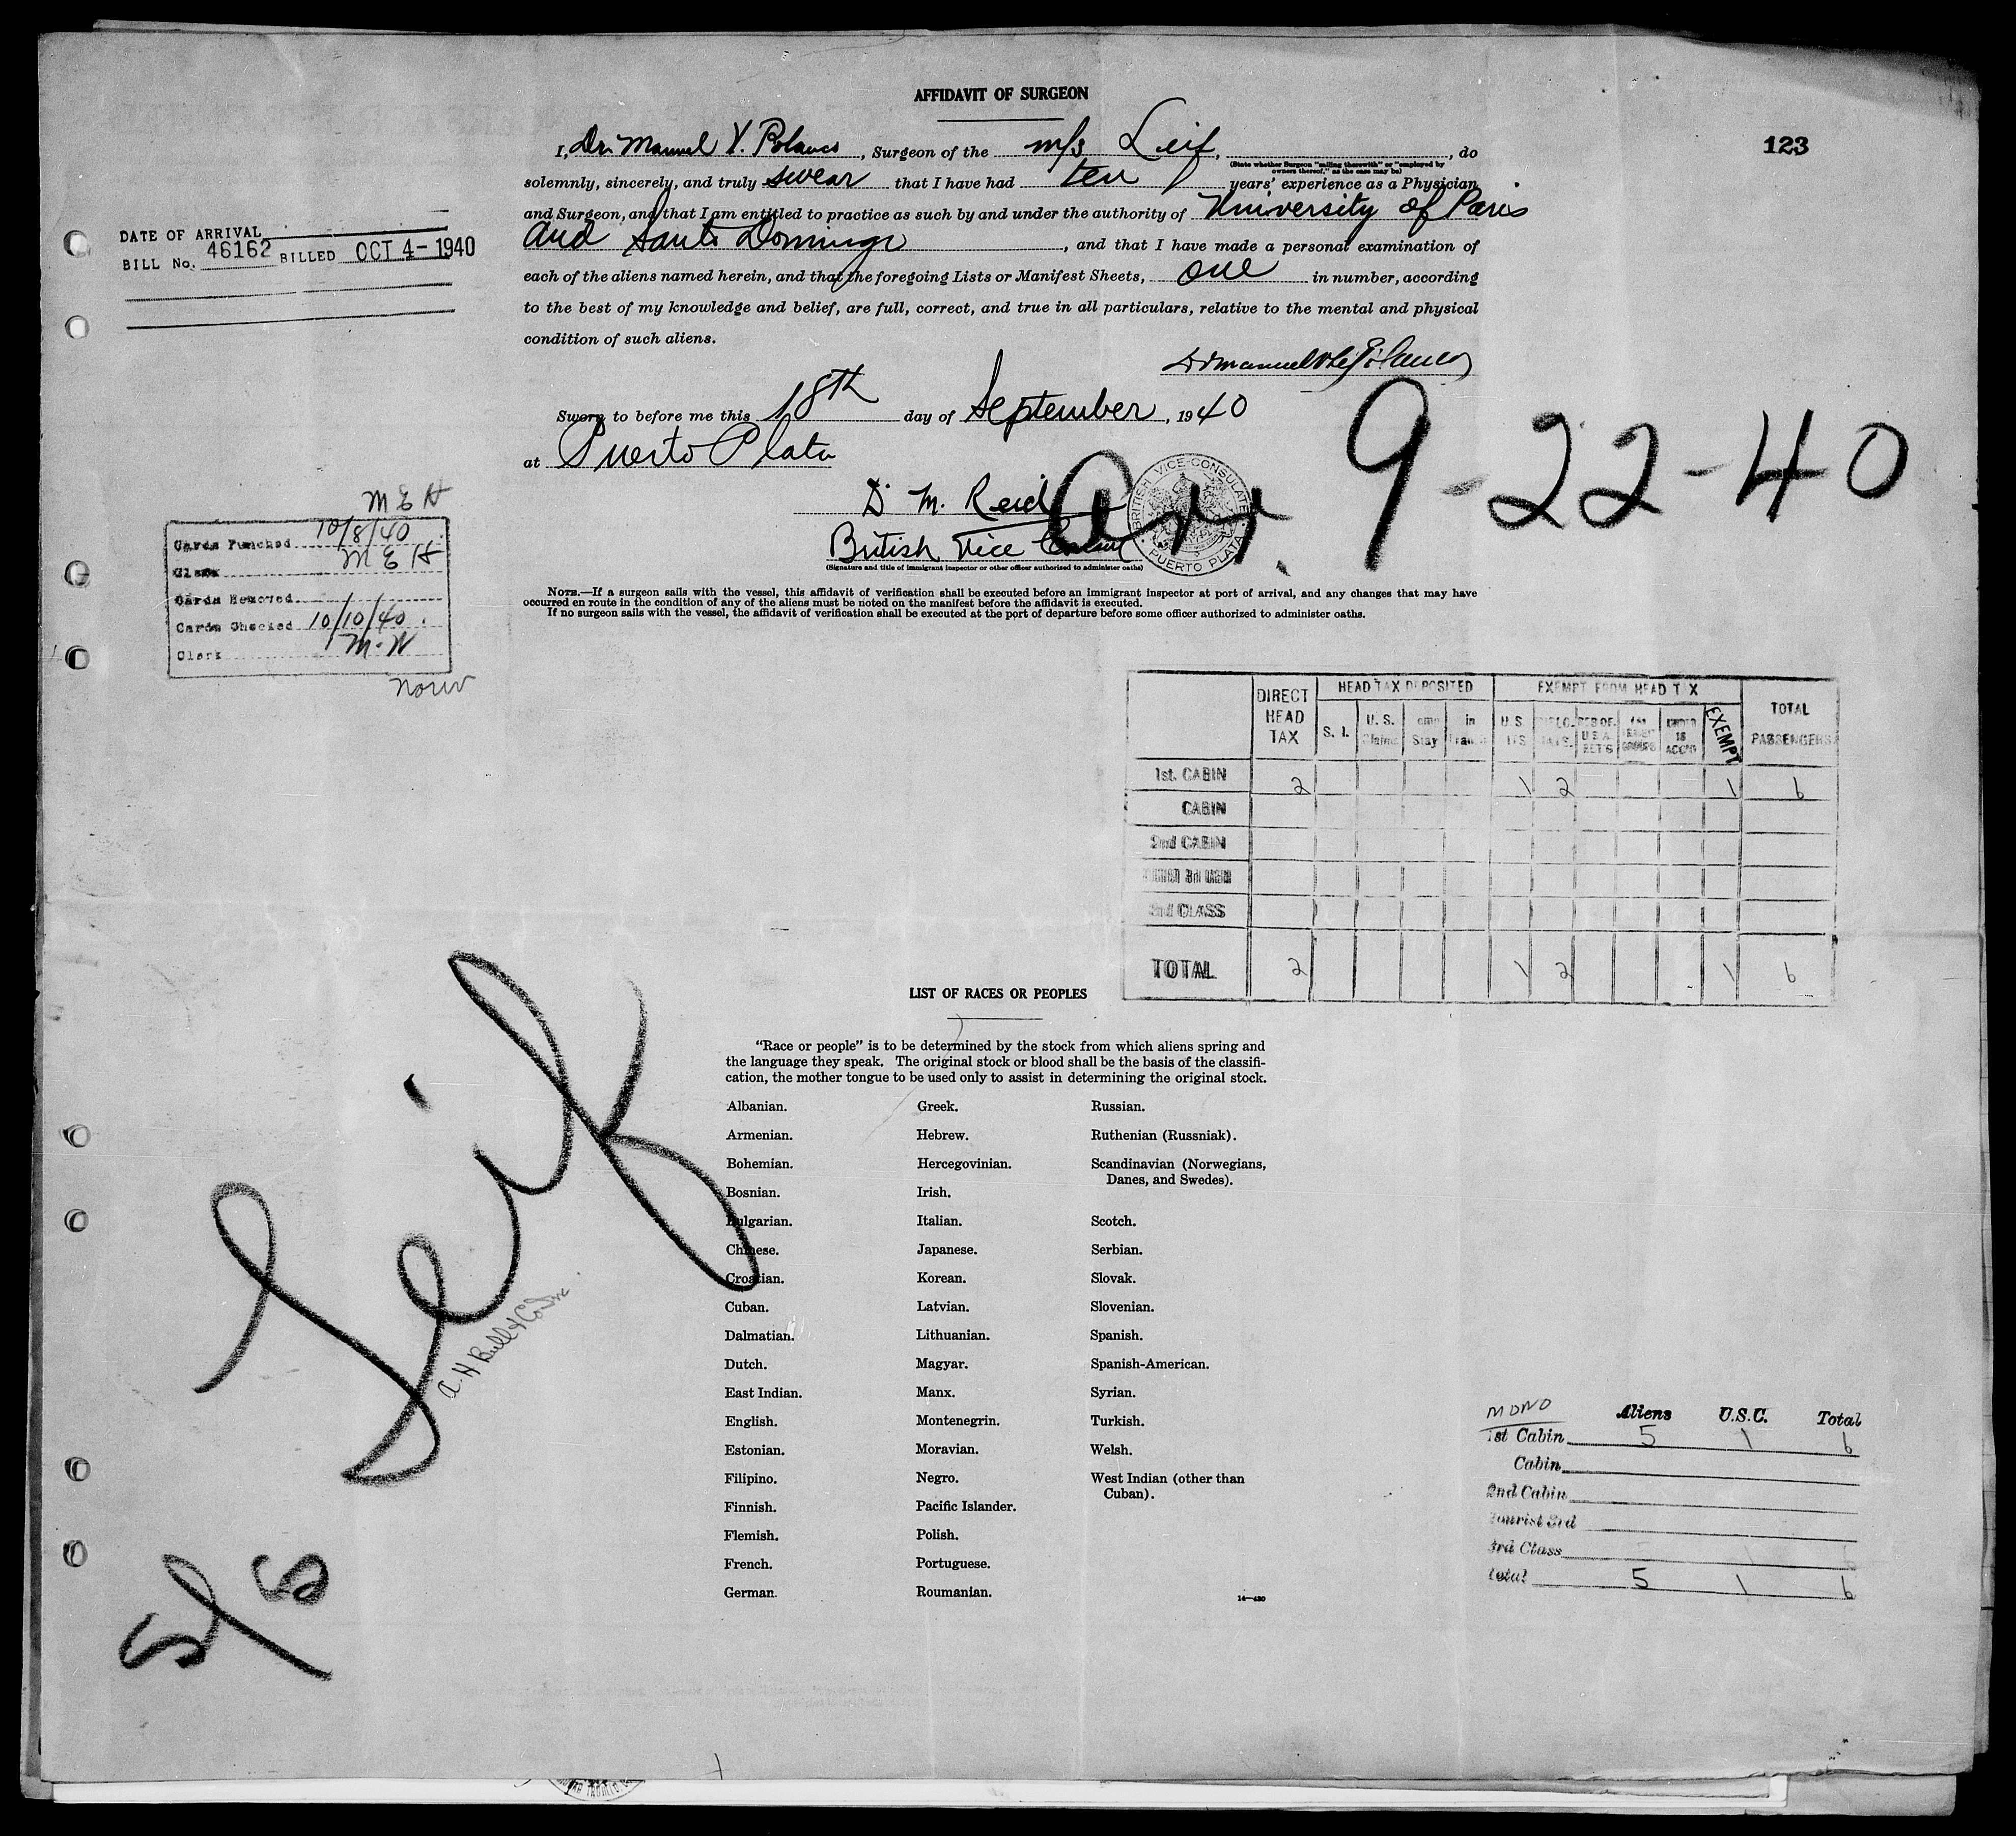 AFFIDAVIT OF SURGEON
123
I, Dr. Manuel V. Polanco, Surgeon of the m/s Leif, , do
(State whether Surgeon "sailing therewith" or "employed by owners thereof," as the case may be)
solemnly, sincerely, and truly swear that I have had ten years' experience as a Physician
and Surgeon, and that I am entitled to practice as such by and under the authority of University of Paris
and Santo Domingo, and that I have made a personal examination of
each of the aliens named herein, and that the foregoing Lists or Manifest Sheets, one in number, according
to the best of my knowledge and belief, are full, correct, and true in all particulars, relative to the mental and physical
condition of such aliens.
DATE OF ARRIVAL
BILL No. 46162 BILLED OCT 4-1940
Sworn to before me this 18th day of September, 1940
at Puerto Plata
D. M. Reid
British Vice Consul
(Signature and title of immigrant inspector or other officer authorized to administer oaths)
BRITISH VICE-CONSULATE
PUERTO PLATA
Arr. 9-22-40
NOTE.—If a surgeon sails with the vessel, this affidavit of verification shall be executed before an immigrant inspector at port of arrival, and any changes that may have
occurred en route in the condition of any of the aliens must be noted on the manifest before the affidavit is executed.
If no surgeon sails with the vessel, the affidavit of verification shall be executed at the port of departure before some officer authorized to administer oaths.
M E H
Cards Punched 10/8/40
Clerk M E H
Cards Removed
Cards Checked 10/10/40
Clerk M. W
DIRECT HEAD TAX HEAD TAX DEPOSITED EXEMPT FROM HEAD TAX TOTAL PASSENGERS
S. I. U. S. Claims Stay in U S EXEMPT
1st. CABIN 2 1 2 1 6
CABIN
2nd CABIN
3rd CLASS
TOTAL 2 1 2 1 6
LIST OF RACES OR PEOPLES
"Race or people" is to be determined by the stock from which aliens spring and
the language they speak. The original stock or blood shall be the basis of the classifi-
cation, the mother tongue to be used only to assist in determining the original stock.
Albanian. Greek. Russian.
Armenian. Hebrew. Ruthenian (Russniak).
Bohemian. Hercegovinian. Scandinavian (Norwegians,
Danes, and Swedes).
Bosnian. Irish.
Bulgarian. Italian. Scotch.
Chinese. Japanese. Serbian.
Croatian. Korean. Slovak.
Cuban. Latvian. Slovenian.
Dalmatian. Lithuanian. Spanish.
Dutch. Magyar. Spanish-American.
East Indian. Manx. Syrian.
English. Montenegrin. Turkish.
Estonian. Moravian. Welsh.
Filipino. Negro. West Indian (other than
Cuban).
Finnish. Pacific Islander.
Flemish. Polish.
French. Portuguese.
German. Roumanian.
14—430
S/S Leif
A. H Bull & Co Inc
MONO Aliens U.S.C. Total
1st Cabin 5 1 6
Cabin
2nd Cabin
Tourist 3rd
3rd Class
Total 5 1 6